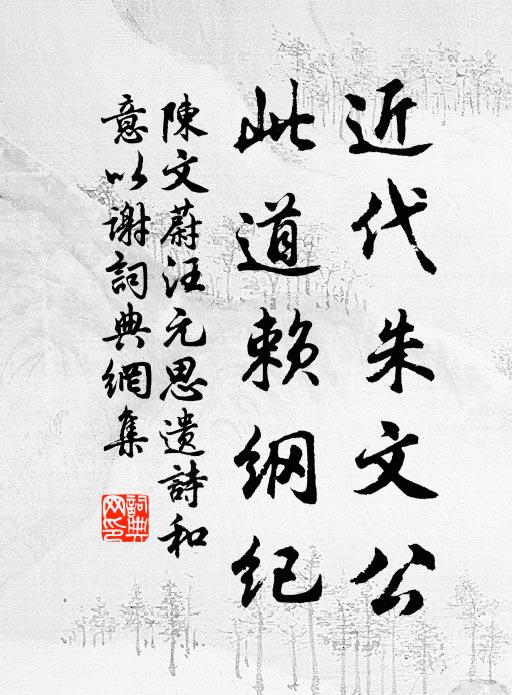 近代朱文公
此道赖纲纪
陳文蔚汪元思遗詩和
意以謝詞典網集
詞典網印